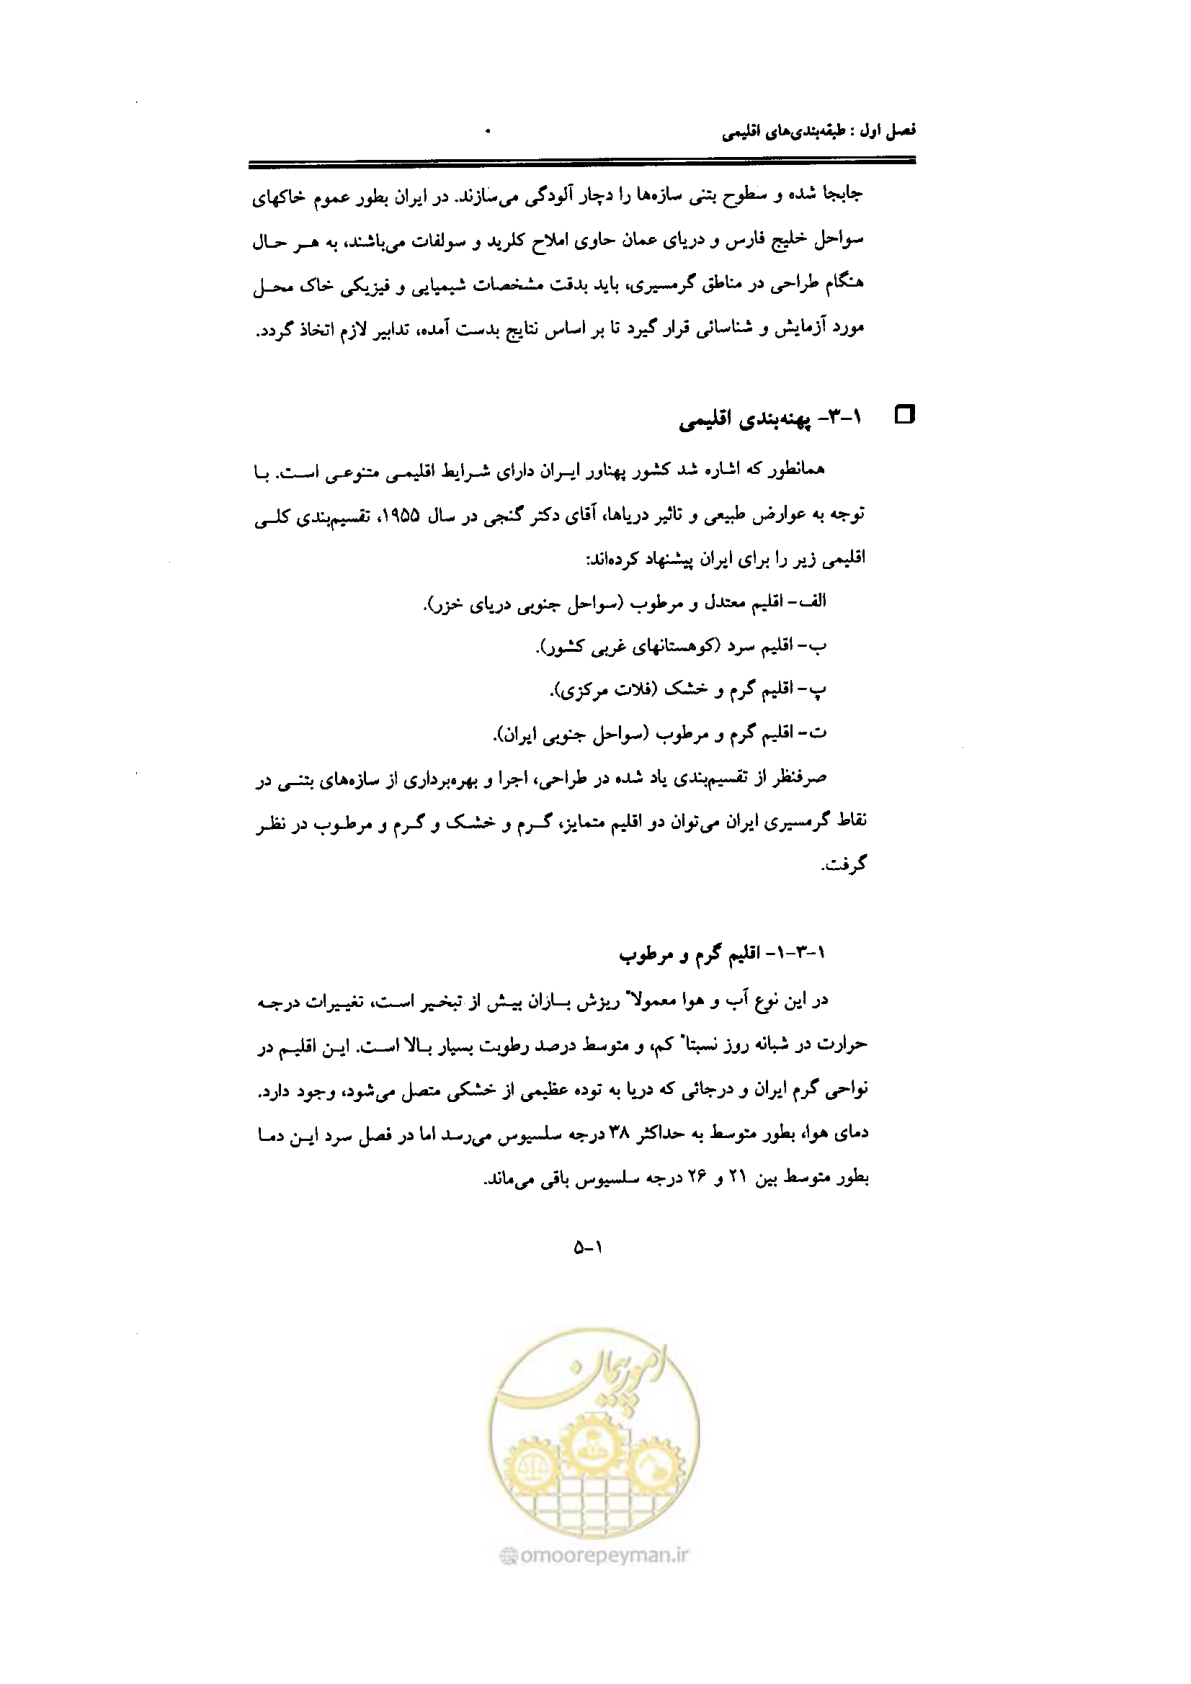 فصل اول : طبقه‌بندی‌های اقلیمی
جابجا شده و سطوح بتنی سازه‌ها را دچار آلودگی می‌سازند. در ایران بطور عموم خاکهای
سواحل خلیج فارس و دریای عمان حاوی املاح کلرید و سولفات می‌باشند، به هر حال
هنگام طراحی در مناطق گرمسیری، باید بدقت مشخصات شیمیایی و فیزیکی خاک محل
مورد آزمایش و شناسائی قرار گیرد تا بر اساس نتایج بدست آمده، تدابیر لازم اتخاذ گردد.
۱-۳- پهنه‌بندی اقلیمی
همانطور که اشاره شد کشور پهناور ایران دارای شرایط اقلیمی متنوعی است. با
توجه به عوارض طبیعی و تاثیر دریاها، آقای دکتر گنجی در سال ۱۹۵۵، تقسیم‌بندی کلی
اقلیمی زیر را برای ایران پیشنهاد کرده‌اند:
الف- اقلیم معتدل و مرطوب (سواحل جنوبی دریای خزر).
ب- اقلیم سرد (کوهستانهای غربی کشور).
پ- اقلیم گرم و خشک (فلات مرکزی).
ت- اقلیم گرم و مرطوب (سواحل جنوبی ایران).
صرفنظر از تقسیم‌بندی یاد شده در طراحی، اجرا و بهره‌برداری از سازه‌های بتنی در
نقاط گرمسیری ایران می‌توان دو اقلیم متمایز، گرم و خشک و گرم و مرطوب در نظر
گرفت.
۱-۳-۱- اقلیم گرم و مرطوب
در این نوع آب و هوا معمولاً ریزش باران بیش از تبخیر است، تغییرات درجه
حرارت در شبانه روز نسبتاً کم، و متوسط درصد رطوبت بسیار بالا است. این اقلیم در
نواحی گرم ایران و درجائی که دریا به توده عظیمی از خشکی متصل می‌شود، وجود دارد.
دمای هوا، بطور متوسط به حداکثر ۳۸ درجه سلسیوس می‌رسد اما در فصل سرد این دما
بطور متوسط بین ۲۱ و ۲۶ درجه سلسیوس باقی می‌ماند.
۵-۱
امور پیمان
omoorepeyman.ir